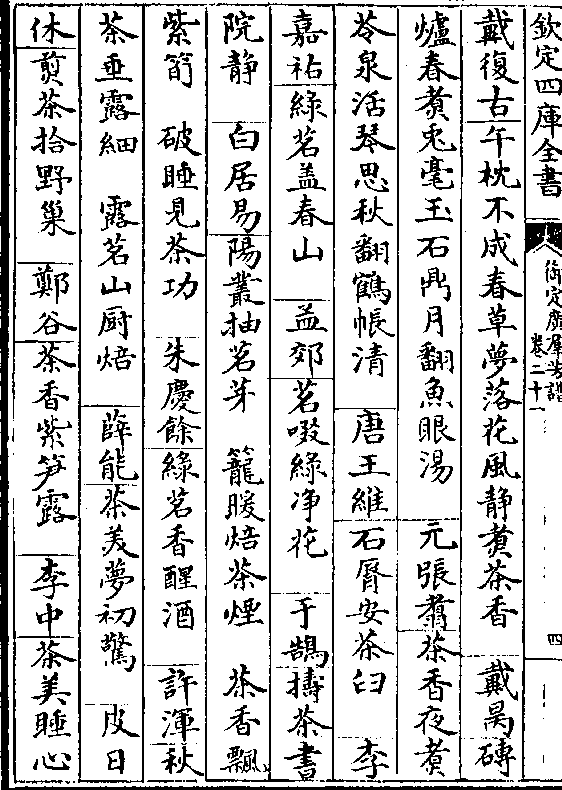 欽定四庫全書
御定廣羣芳譜
卷二十一
四
戴復古午枕不成春草夢落花風静煑茶香　戴昺磚
爐春煑兎毫玉石鼎月翻魚眼湯　元張翥茶香夜煑
苓泉活琴思秋翻鶴帳清　唐王維石脣安茶臼　李
嘉祐綠茗盖春山　孟郊茗啜綠净花　于鵠擣茶書
院静　白居易陽叢抽茗芽　籠暖焙茶煙　茶香飄
紫筍　破睡見茶功　朱慶餘綠茗香醒酒　許渾秋
茶垂露細　露茗山厨焙　薛能茶美夢初驚　皮日
休剪茶拾野巢　鄭谷茶香紫笋露　李中茶美睡心